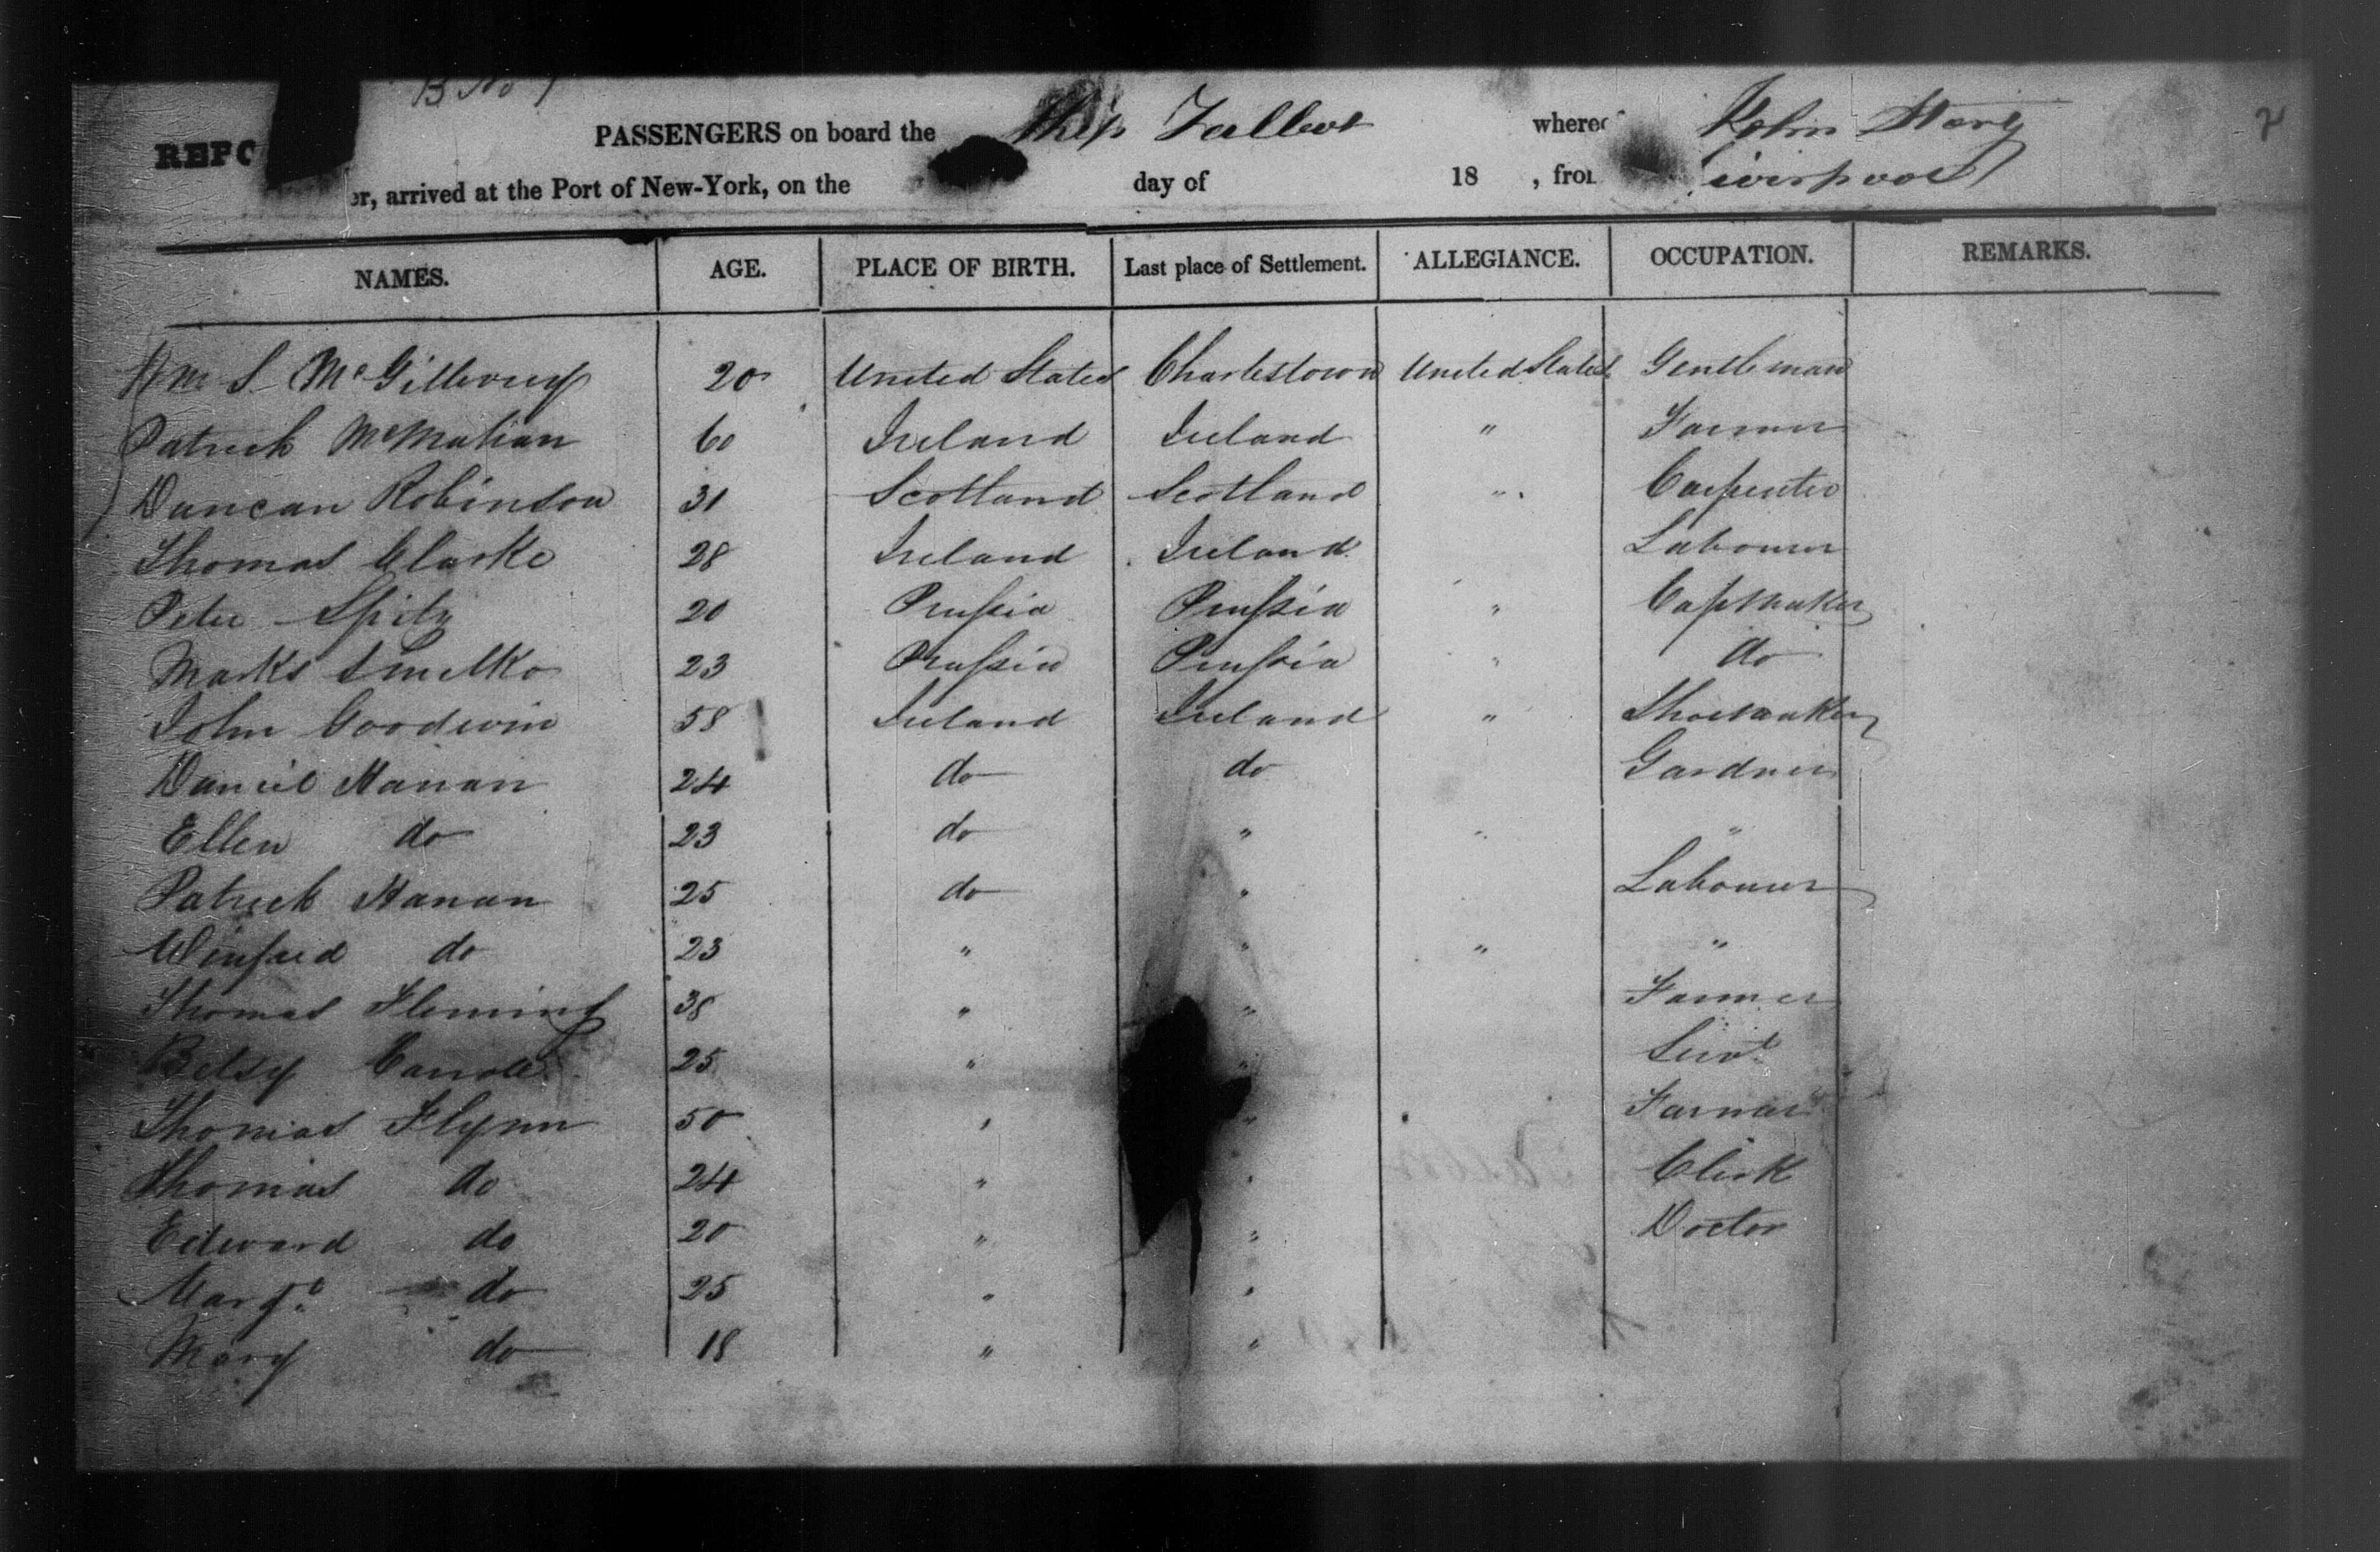 B No 1
REPO
PASSENGERS on board the Ship Talbot whereo John Story
er, arrived at the Port of New-York, on the day of 18 , from Liverpool
NAMES. AGE. PLACE OF BIRTH. Last place of Settlement. ALLEGIANCE. OCCUPATION. REMARKS.
Wm S McGillevry 20 United States Charlestown United States Gentleman
Patrick McMahan 60 Ireland Ireland " Farmer
Duncan Robinson 31 Scotland Scotland " Carpenter
Thomas Clarke 28 Ireland Ireland Labourer
Peter Spitz 20 Prussia Prussia " Capmaker
Marks 23 Prussia Prussia " do
John Goodwin 58 Ireland Ireland " Shoemaker
Daniel Hanan 24 do do Gardner
Ellen do 23 do " " "
Patrick Hanan 25 do " Labourer
Winfred do 23 " " " "
Thomas Fleming 38 " " Farmer
Betsy Carroll 25 " " Servt
Thomas Flynn 50 " " Farmer
Thomas do 24 " " Clerk
Edward do 20 " " Doctor
Margt do 25 " "
Mary do 18 " "
2